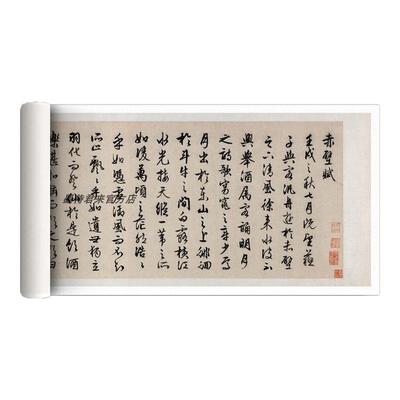 赤壁賦
壬戌之秋七月既望蘇
子與客泛舟遊於赤壁
之下清風徐來水波不
興舉酒屬客誦明月
之詩歌窈窕之章少焉
月出於東山之上徘徊
於斗牛之間白露橫江
水光接天縱一葦之所
如凌萬頃之茫然浩〻
乎如馮虛御風而不知
所止飄〻乎如遺世獨立
羽化而登仙於是飲酒
樂甚扣舷而歌之歌曰
君来官方店